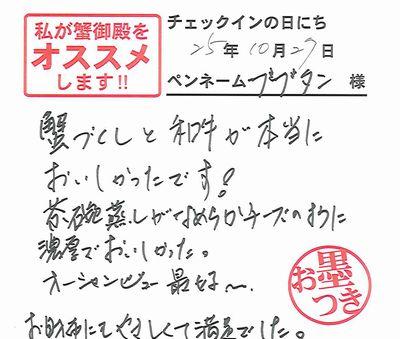 私が蟹御殿を
オススメ
します!!
チェックインの日にち
25年10月29日
ペンネーム ブブタン 様
蟹づくしと和牛が本当に
おいしかったです!
茶碗蒸しがなめらかチーズのように
濃厚でおいしかった。
オーシャンビュー 最好〜
お墨つき
お財布にもやさしくて満足でした。